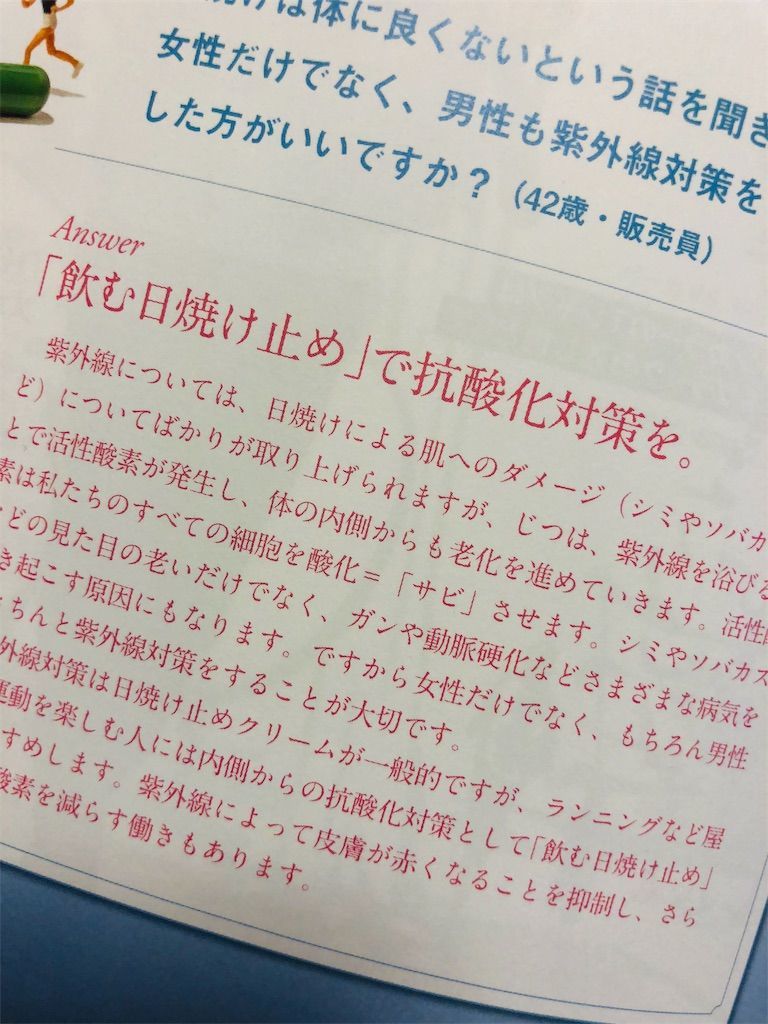 は体に良くないという話を聞き
女性だけでなく、男性も紫外線対策を
した方がいいですか？（42歳・販売員）
Answer
「飲む日焼け止め」で抗酸化対策を。
紫外線については、日焼けによる肌へのダメージ（シミやソバカ
ど）についてばかりが取り上げられますが、じつは、紫外線を浴びる
とで活性酸素が発生し、体の内側からも老化を進めていきます。活性
素は私たちのすべての細胞を酸化＝「サビ」させます。シミやソバカス
どの見た目の老いだけでなく、ガンや動脈硬化などさまざまな病気を
き起こす原因にもなります。ですから女性だけでなく、もちろん男性
ちんと紫外線対策をすることが大切です。
外線対策は日焼け止めクリームが一般的ですが、ランニングなど屋
運動を楽しむ人には内側からの抗酸化対策として「飲む日焼け止め」
すめします。紫外線によって皮膚が赤くなることを抑制し、さら
酸素を減らす働きもあります。